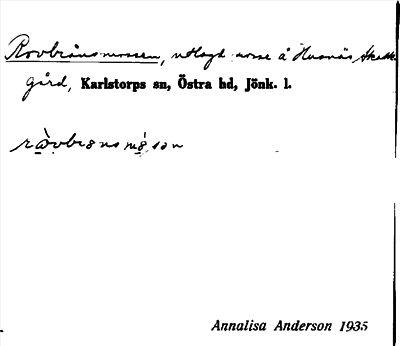 Rovbränsmossen, utlagd mosse å Husnäs skatte
gård, Karlstorps sn, Östra hd, Jönk. l.
Annalisa Anderson 1935